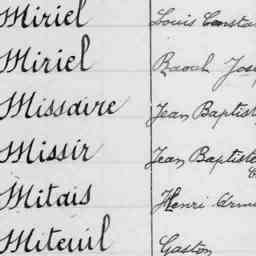 Miriel Louis
Miriel Raoul
Missaire Jean Baptist
Missir Jean Baptiste
Mitais Henri
Miteuil Gaston